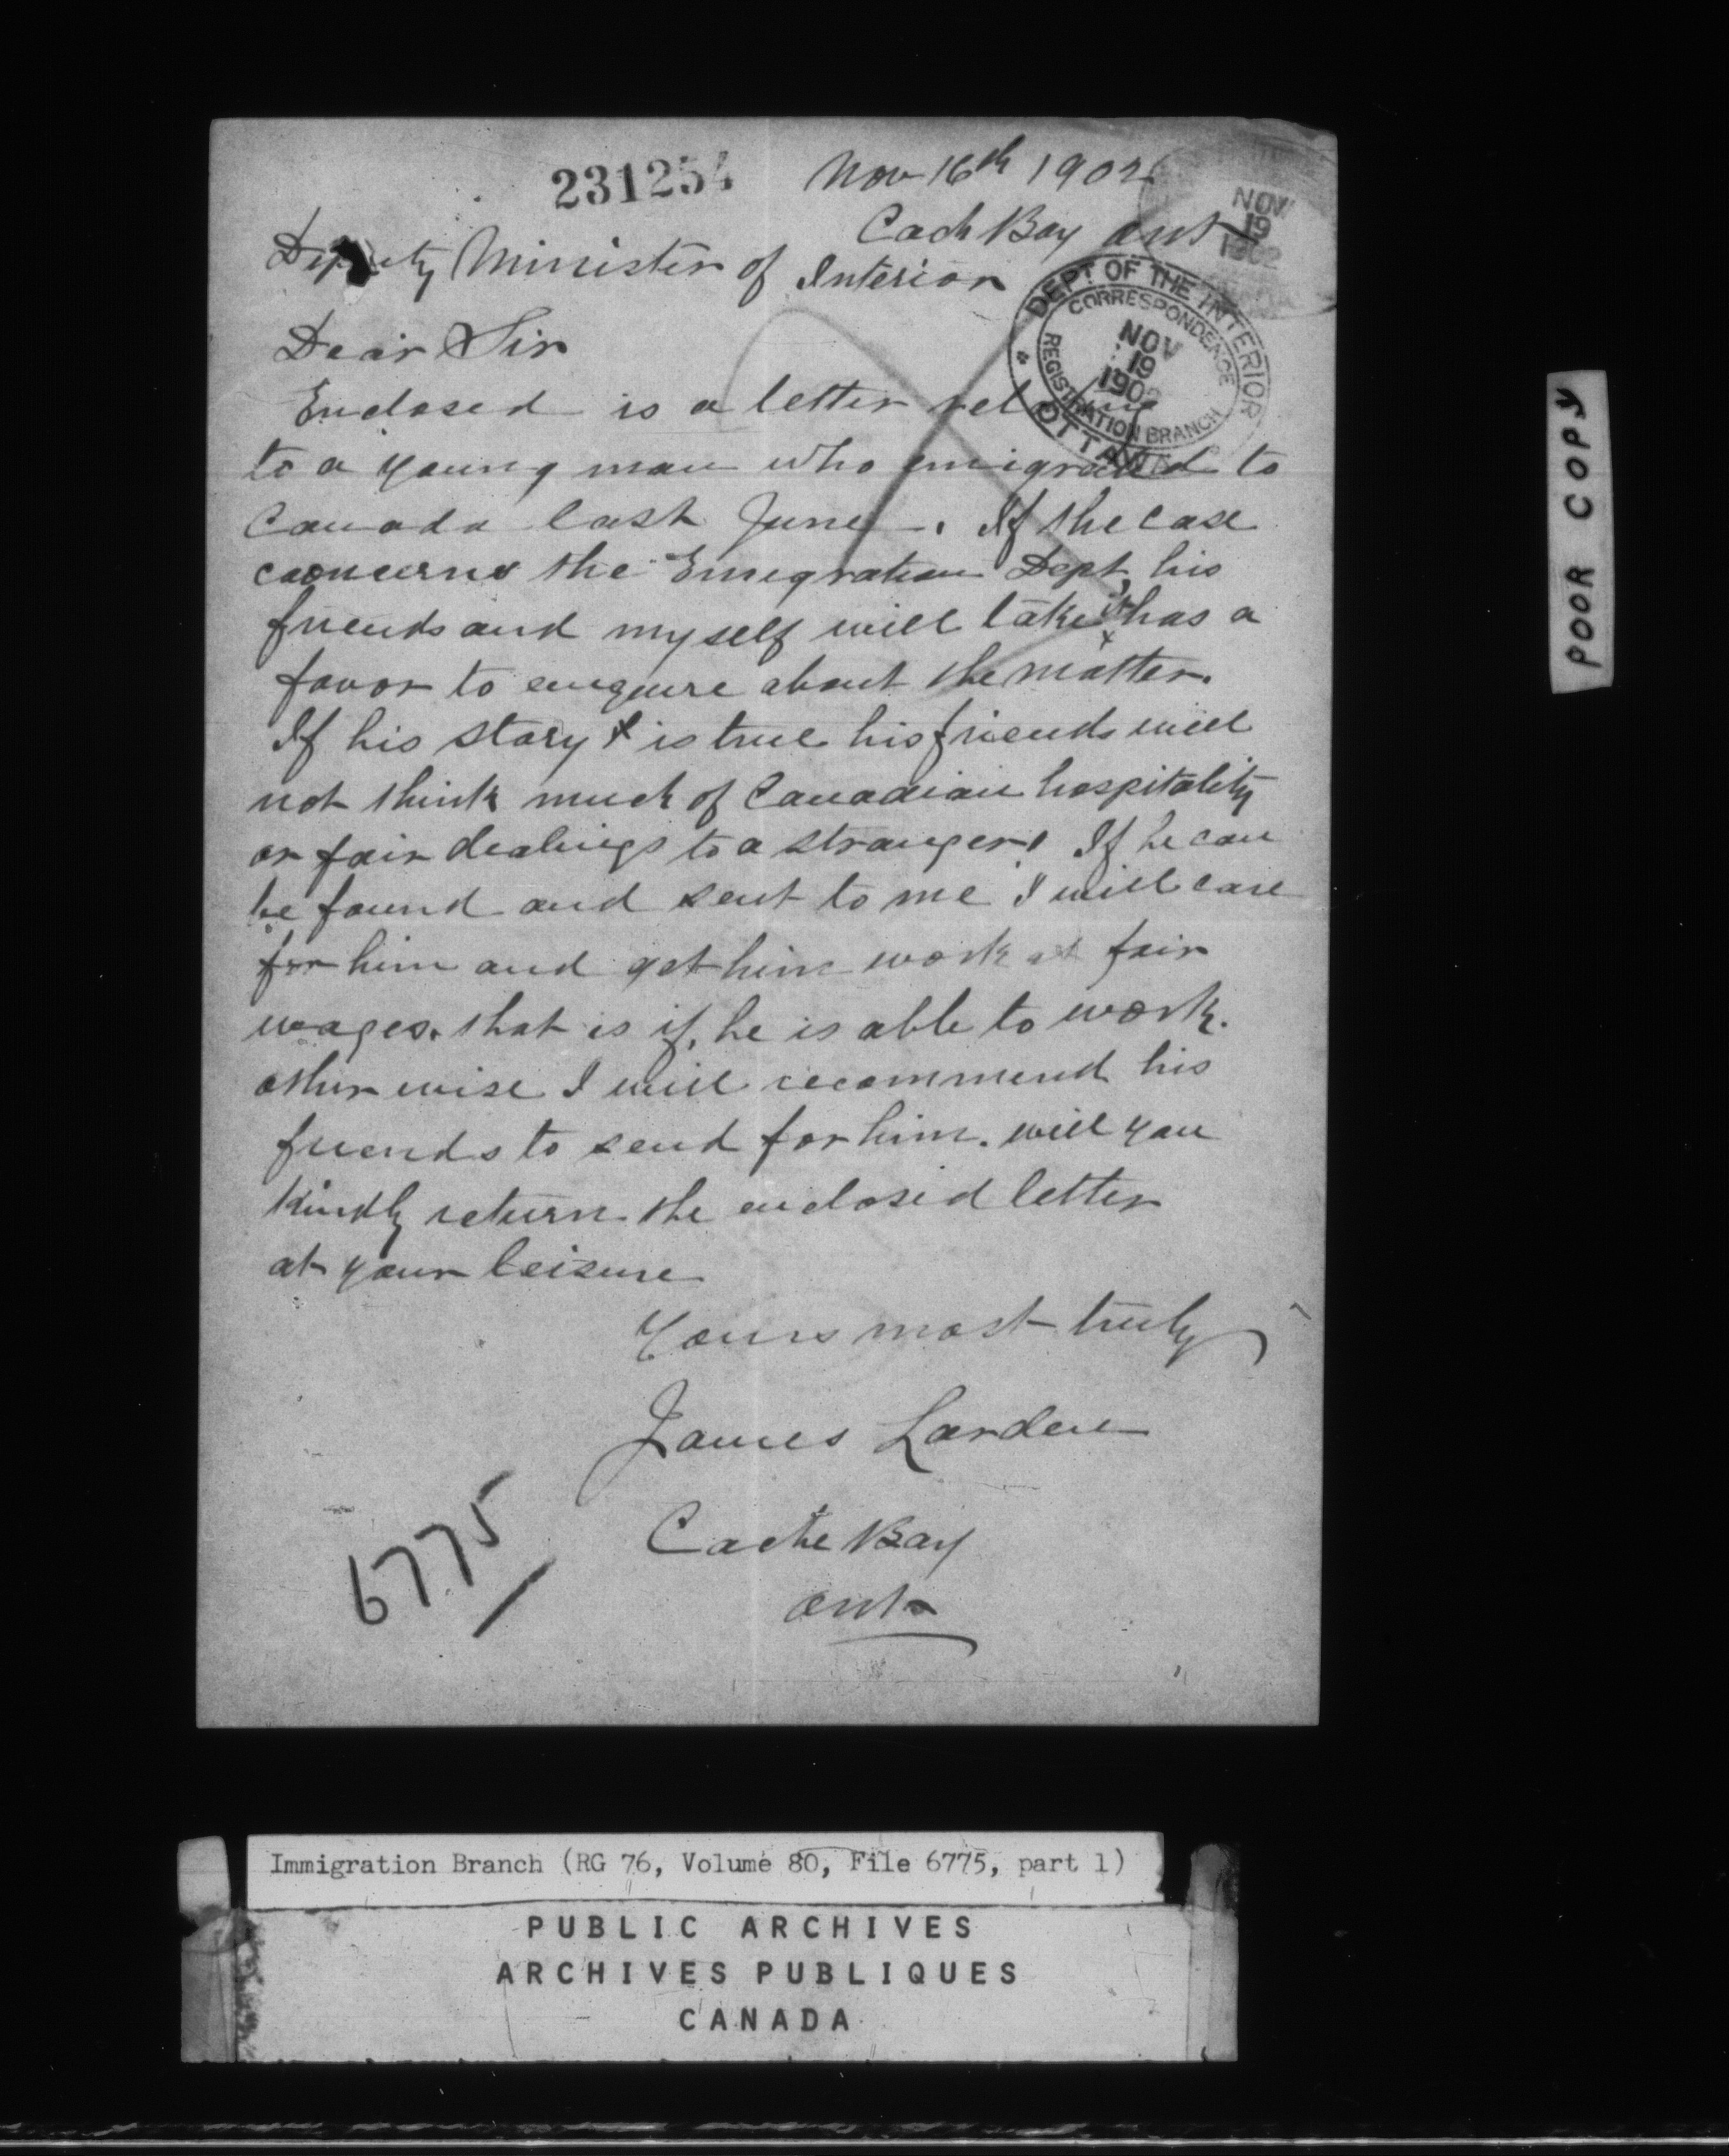 231254
Nov 16th 1902
Cach Bay Ont
NOV
19
1902
Deputy Minister of Interior
DEPT OF THE INTERIOR
CORRESPONDENCE
NOV
19
1902
REGISTRATION BRANCH
OTTAWA
Dear Sir
Enclosed is a letter relating
to a young man who emigrated to
Canada last June. If the case
concerns the Emigration Dept, his
friends and myself will take it has a
favor to enquire about the matter.
If his story is true his friends will
not think much of Canadian hospitality
or fair dealings to a stranger. If he can
be found and sent to me I will care
for him and get him work at fair
wages. that is if, he is able to work.
other wise I will recommend his
friends to send for him. will you
Kindly return the enclosed letter
at your leisure
Yours most truly
James Larden
Cache Bay
Ont
6775
POOR COPY
Immigration Branch (RG 76, Volume 80, File 6775, part 1)
PUBLIC ARCHIVES
ARCHIVES PUBLIQUES
CANADA